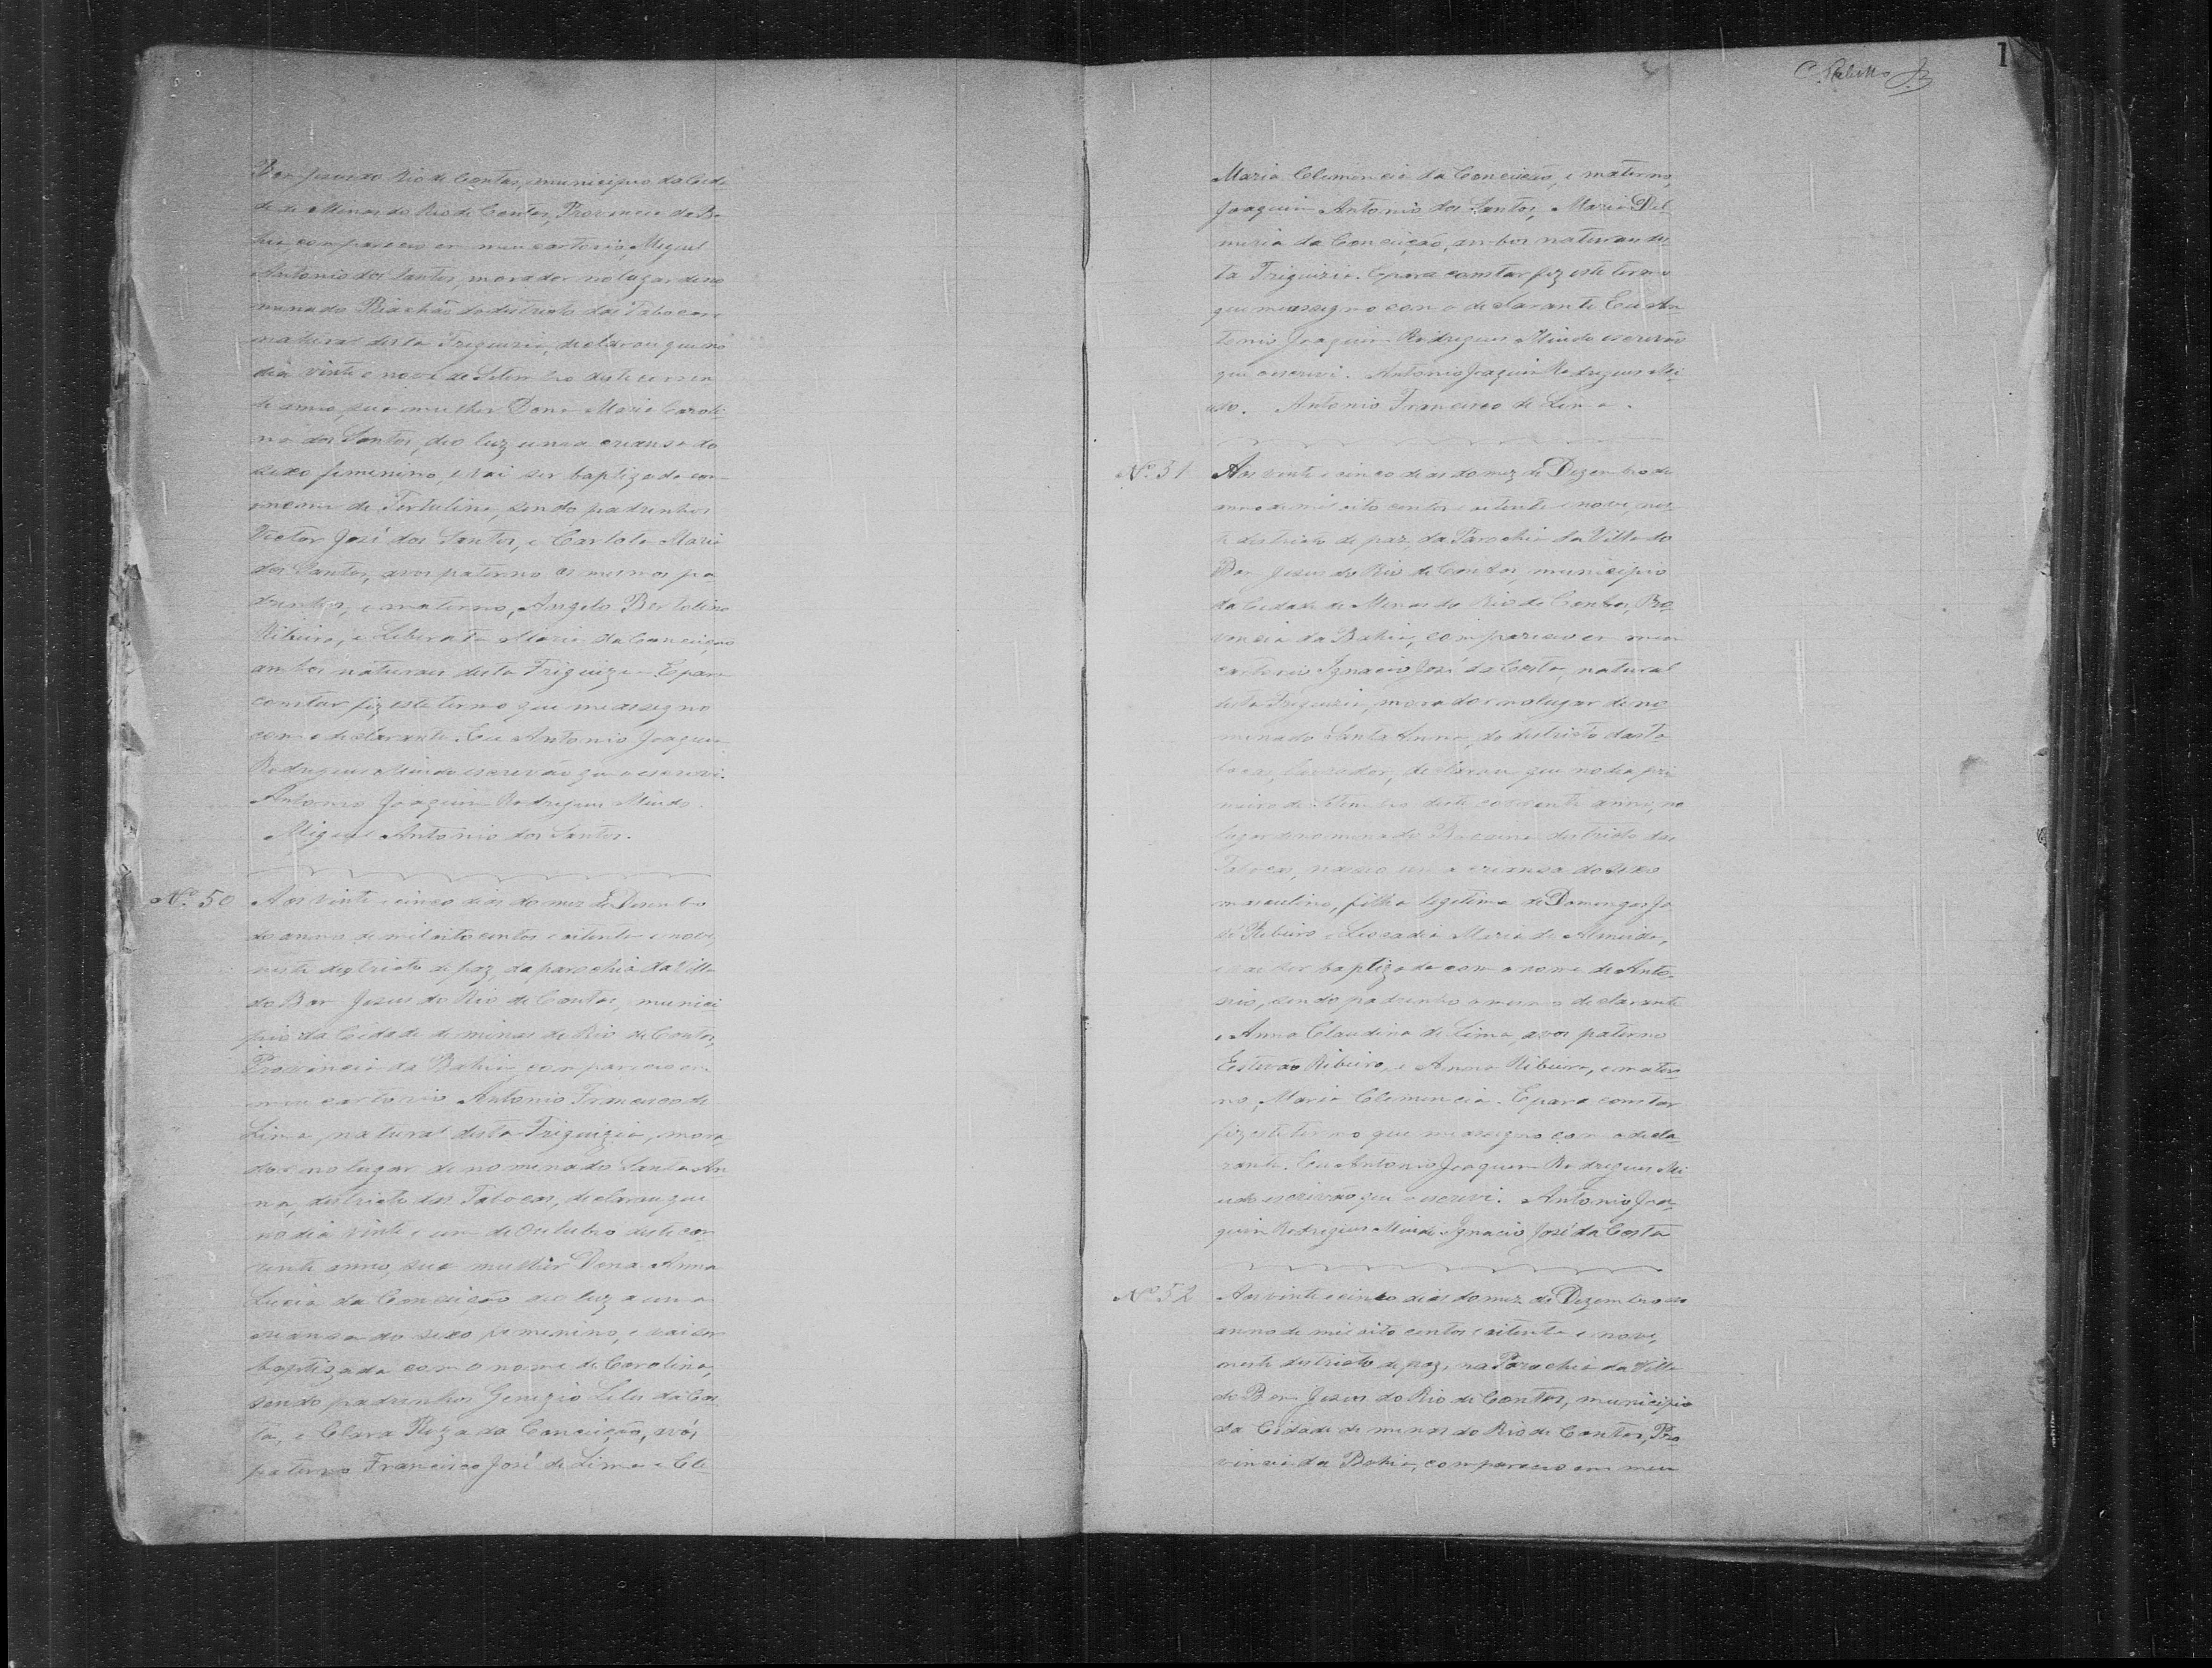 Bom Jesus do Rio de Contas, municipio da Cida
de de Minas do Rio de Contas, Provincia da Ba
hia, compareceu em meu cartorio, Miguel
Antonio dos Santos, morador no lugar deno
minado Riachão do districto das Tabocas e
natural desta Freguizia, declarou que no
dia vinte e nove de Setembro deste corren
te anno, sua mulher Dona Maria Caroli
na dos Santos, deo luz uma criansa do
sexo femenino, e vai ser baptizada com
o nome de Tertulina, sendo padrinhos
Victor José dos Santos, e Carlota Maria
dos Santos, avos paterno os mesmos pa
drinhos, e materno, Angelo Bertolino
Ribeiro, e Liberata Maria da Conceição
ambos naturaes desta Freguizia. E para
constar fiz este termo que me assigno
com o declarante. Eu Antonio Joaquim
Rodrigues Miudo escrivão que o escrevi.
Antonio Joaquim Rodrigues Miudo.
Miguel Antonio dos Santos.
Nº 50 Aos vinte e cinco dias do mez de Desembro
do anno de mil oito centos e oitenta e nove,
neste destricto de paz, da parochia da Villa
do Bom Jesus do Rio de Contas, munici
pio da Cidade de minas do Rio de Contas,
Provincia da Bahia, compareceo em
meu cartorio Antonio Francisco de
Lima, natural desta Freiguizia, mora
dor no lugar denominado Santa An
na, destricto das Tabocas, declarou que
no dia vinte e um de Outubro deste cor
rente anno, sua mulher Dona Anna
Lucia da Conceicão deo luz a uma
criansa do sexo femenino, e vai ser
baptisada com o nome de Carolina,
sendo padrinhos Genezio Lelis da Cos
ta, e Clara Roza da Conceição, avós
paterno Francisco José de Lima e Cle
1
Maria Clemencia da Conceicão, e materno,
Joaquim Antonio dos Santos, Maria Del
miria da Conceição, ambos naturaes des
ta Freiguizia. E para constar fiz este termo
que me assigno com o declarante Eu An
tonio Joaquim Rodrigues Miudo escrivão
que o escrevi. Antonio Joaquim Rodrigues Mi
udo. Antonio Francisco de Lima.
Nº 51 Aos vinte e cinco dias do mez de Dezembro do
anno de mil oito centos e oitenta e nove, nes
te districto de paz, da Parochia da Villa do
Bom Jesus do Rio de Contas, municipio
da Cidade de Minas do Rio de Contas, Pro
vencia da Bahia, compareceo em meu
cartorio Ignacio José da Costa, natural
desta Freiguizia, morador no lugar deno
minado Santa Anna, do destricto das Ta
bocas, lavrador, declarou que no dia pri
meiro de Setembro deste corrente anno, no
lugar denominado destricto das
Tabocas, nasceo uma criansa do sexo
masculino, filho legitimo de Domingos Jo
sé Ribeiro e Leocadia Maria de Almeida,
e vai ser baptizado com o nome de Anto-
nio, sendo padrinho o mesmo declarante
e Anna Claudina de Lima, avos paterno
Estevão Ribeiro, e Anna Ribeiro, e mater
no, Maria Clemencia. E para constar
fiz este termo que me assigno com o decla
rante. Eu Antonio Joaquim Rodrigues Mi
udo escrivão que o escrevi. Antonio Joa
quim Rodrigues Miudo. Ignacio José da Costa
Nº 52 Aos vinte e cinco dias do mez de Dezembro do
anno de mil oito centos e oitenta e nove,
neste destricto de paz, na Parochia da Villa
do Bom Jesus do Rio de Contas, municipio
da Cidade de minas do Rio de Contas, Pro
vincia da Bahia, compareceo em meu